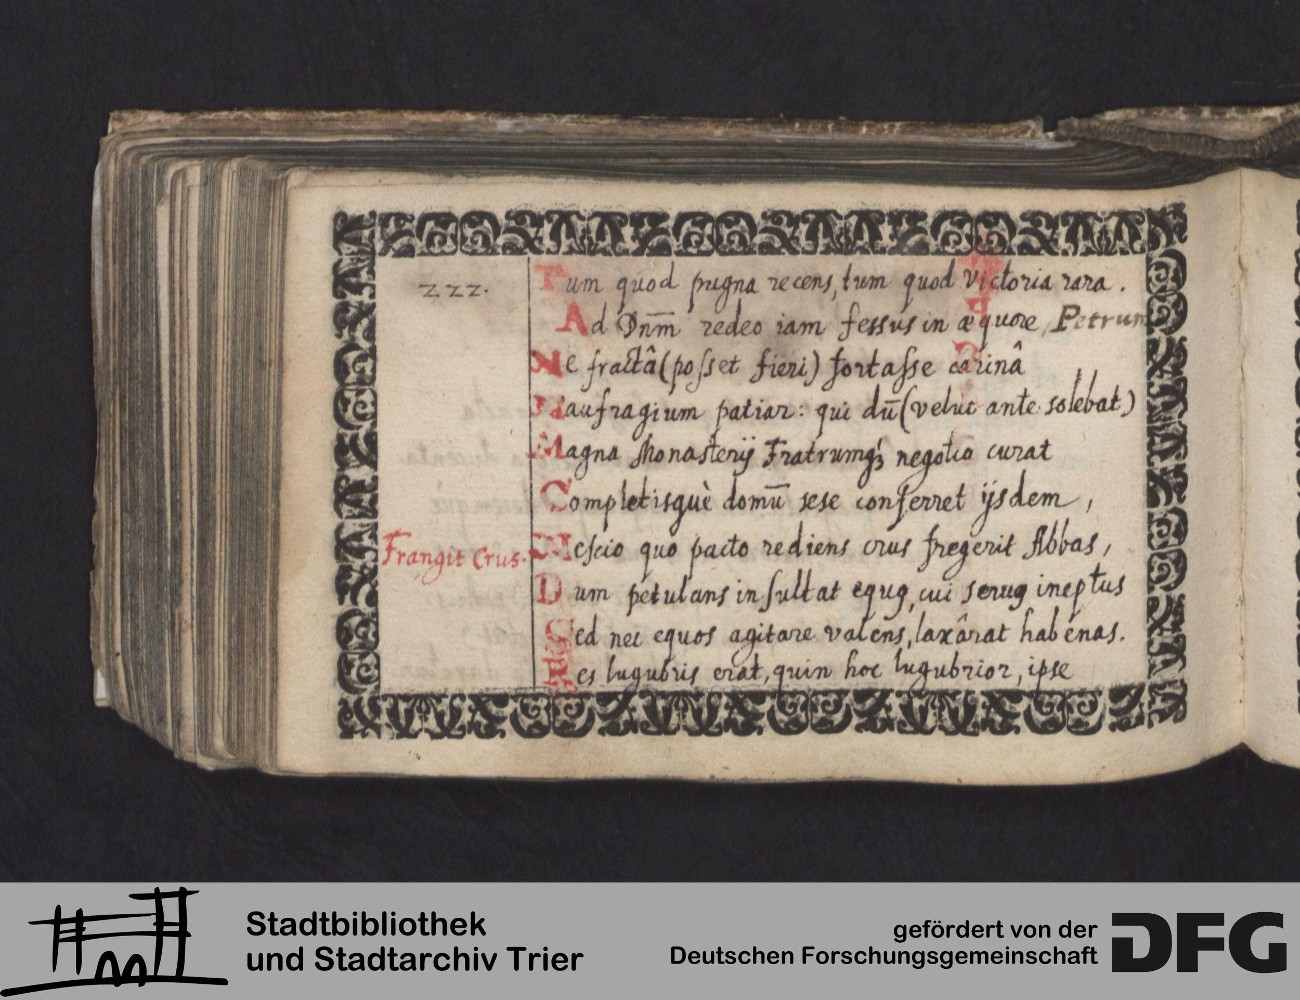 222.
Tum quod pugna recens, tum quod victoria rara.
Ad Dn̄m̄ redeo iam fessus in æquore, Petrum
Ne fractâ (posset fieri) fortasse carinâ
Naufragium patiar: qui dū (velut ante solebat)
Magna Monasterij Fratrumq́; negotia curat
Completisquè domū sese conferret ijsdem,
Frangit Crus.
Nescio quo pacto rediens crus fregerit Abbas,
Dum petulans insultat equus, cui seruus ineptus
Sed nec equos agitare valens, laxârat habenas.
Res lugubris erat, quin hoc lugubrior, ipse
Stadtbibliothek
und Stadtarchiv Trier
gefördert von der
Deutschen Forschungsgemeinschaft
DFG